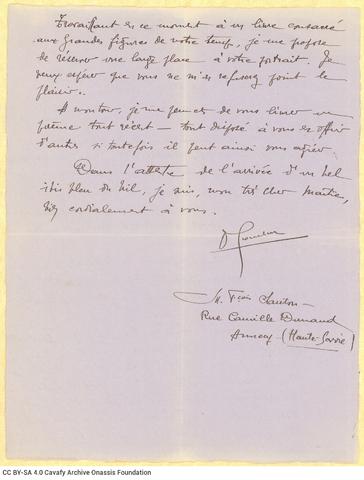 Travaillant en ce moment à un livre consacré
aux grandes figures de notre temps, je me propose
de réserver une large place à votre portrait. Je
veux espérer que vous ne m'en refuserez point le
plaisir.
A mon tour, je me permets de vous
poème tout récent — tout disposé à vous en offrir
d'autres si toutefois il peut ainsi vous agréer.
Dans l'attente de l'arrivée d'un bel
ibis bleu du Nil, je suis, mon très cher Maître,
bien cordialement à vous.
M.
Rue Camille Dunand
Annecy (Haute-Savoie)
CC BY-SA 4.0 Cavafy Archive Onassis Foundation